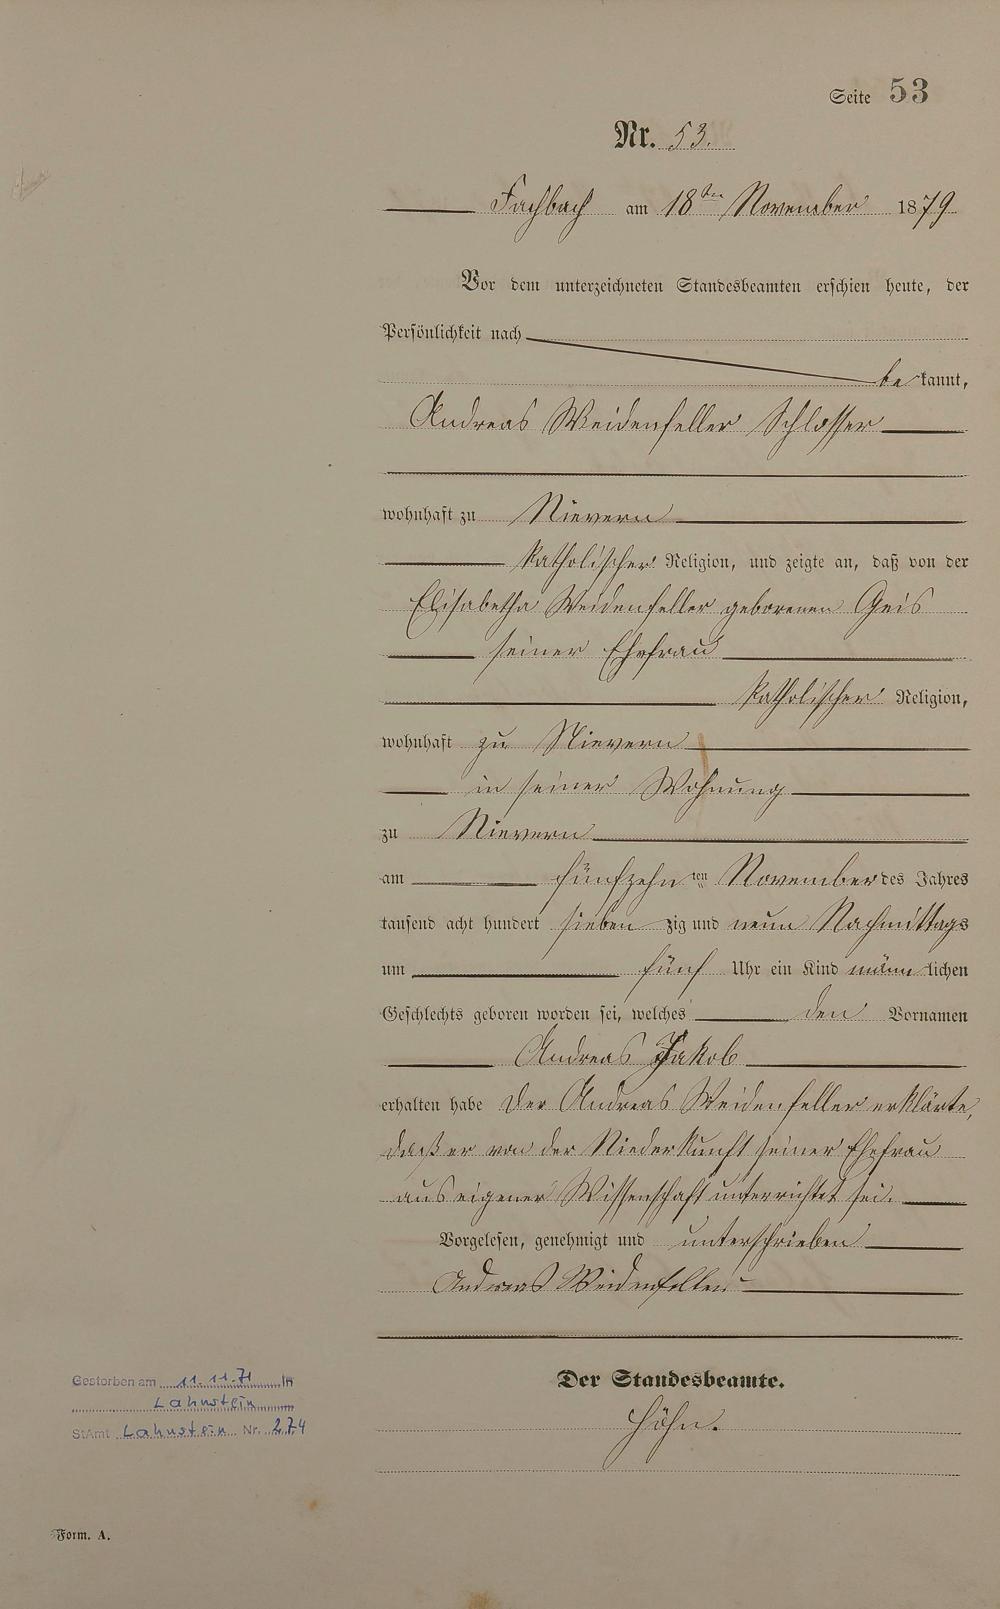 Seite 53
Nr. 53.
Fachbach am 18ten November 1879
Vor dem unterzeichneten Standesbeamten erschien heute, der
Persönlichkeit nach
bekannt,
Andreas Weidenfeller Schlosser
wohnhaft zu Nievern
katholischer Religion, und zeigte an, daß von der
Elisabetha Weidenfeller geborenen Geis
seiner Ehefrau
katholischer Religion,
wohnhaft zu Nievern
in seiner Wohnung
zu Nievern
am fünfzehnten November des Jahres
tausend acht hundert siebenzig und neun Nachmittags
um fünf Uhr ein Kind männlichen
Geschlechts geboren worden sei, welches den Vornamen
Andreas Jakob
erhalten habe Der Andreas Weidenfeller erklärte,
daß er von der Niederkunft seiner Ehefrau
aus eigener Wissenschaft unterrichtet sei.
Vorgelesen, genehmigt und unterschrieben
Andreas Weidenfeller
Der Standesbeamte.
Höhn.
Gestorben am 11.11.71 in
Lahnstein
StAmt Lahnstein Nr. 274
Form. A.